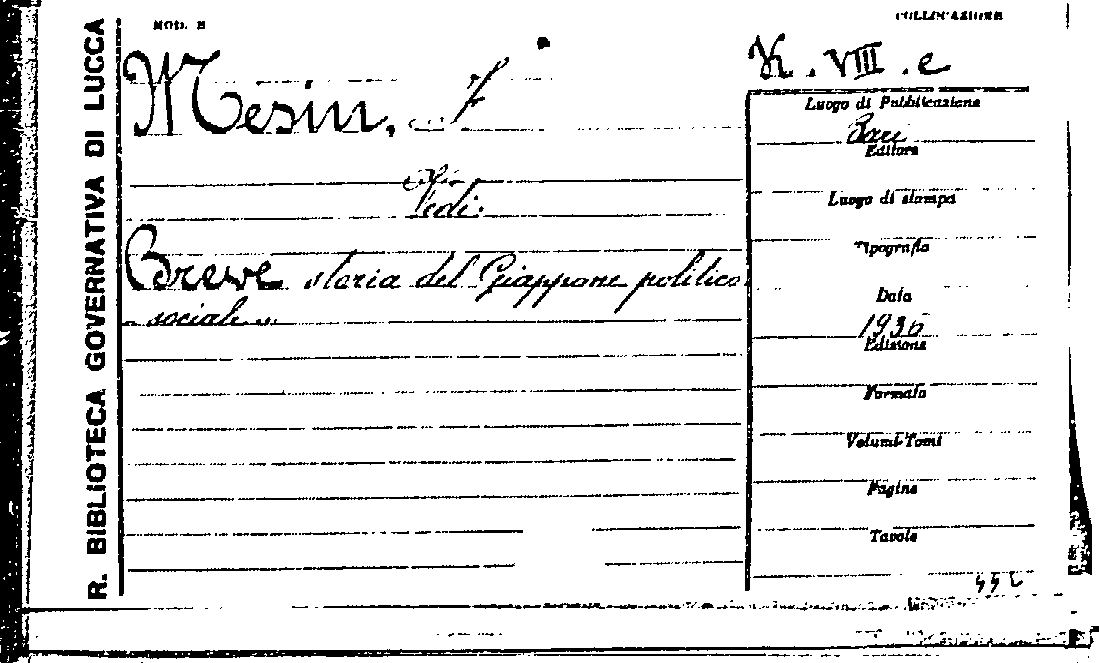 R. BIBLIOTECA GOVERNATIVA DI LUCCA
MOD. B
COLLOCAZIONE
Mesin, F
K. VIII. e
Vedi:
Breve storia del Giappone politico
- sociale.
Luogo di Pubblicazione
Bari
Editore
Luogo di stampa
Tipografia
Data
1936
Edizione
Formato
Volumi-Tomi
Pagine
Tavole